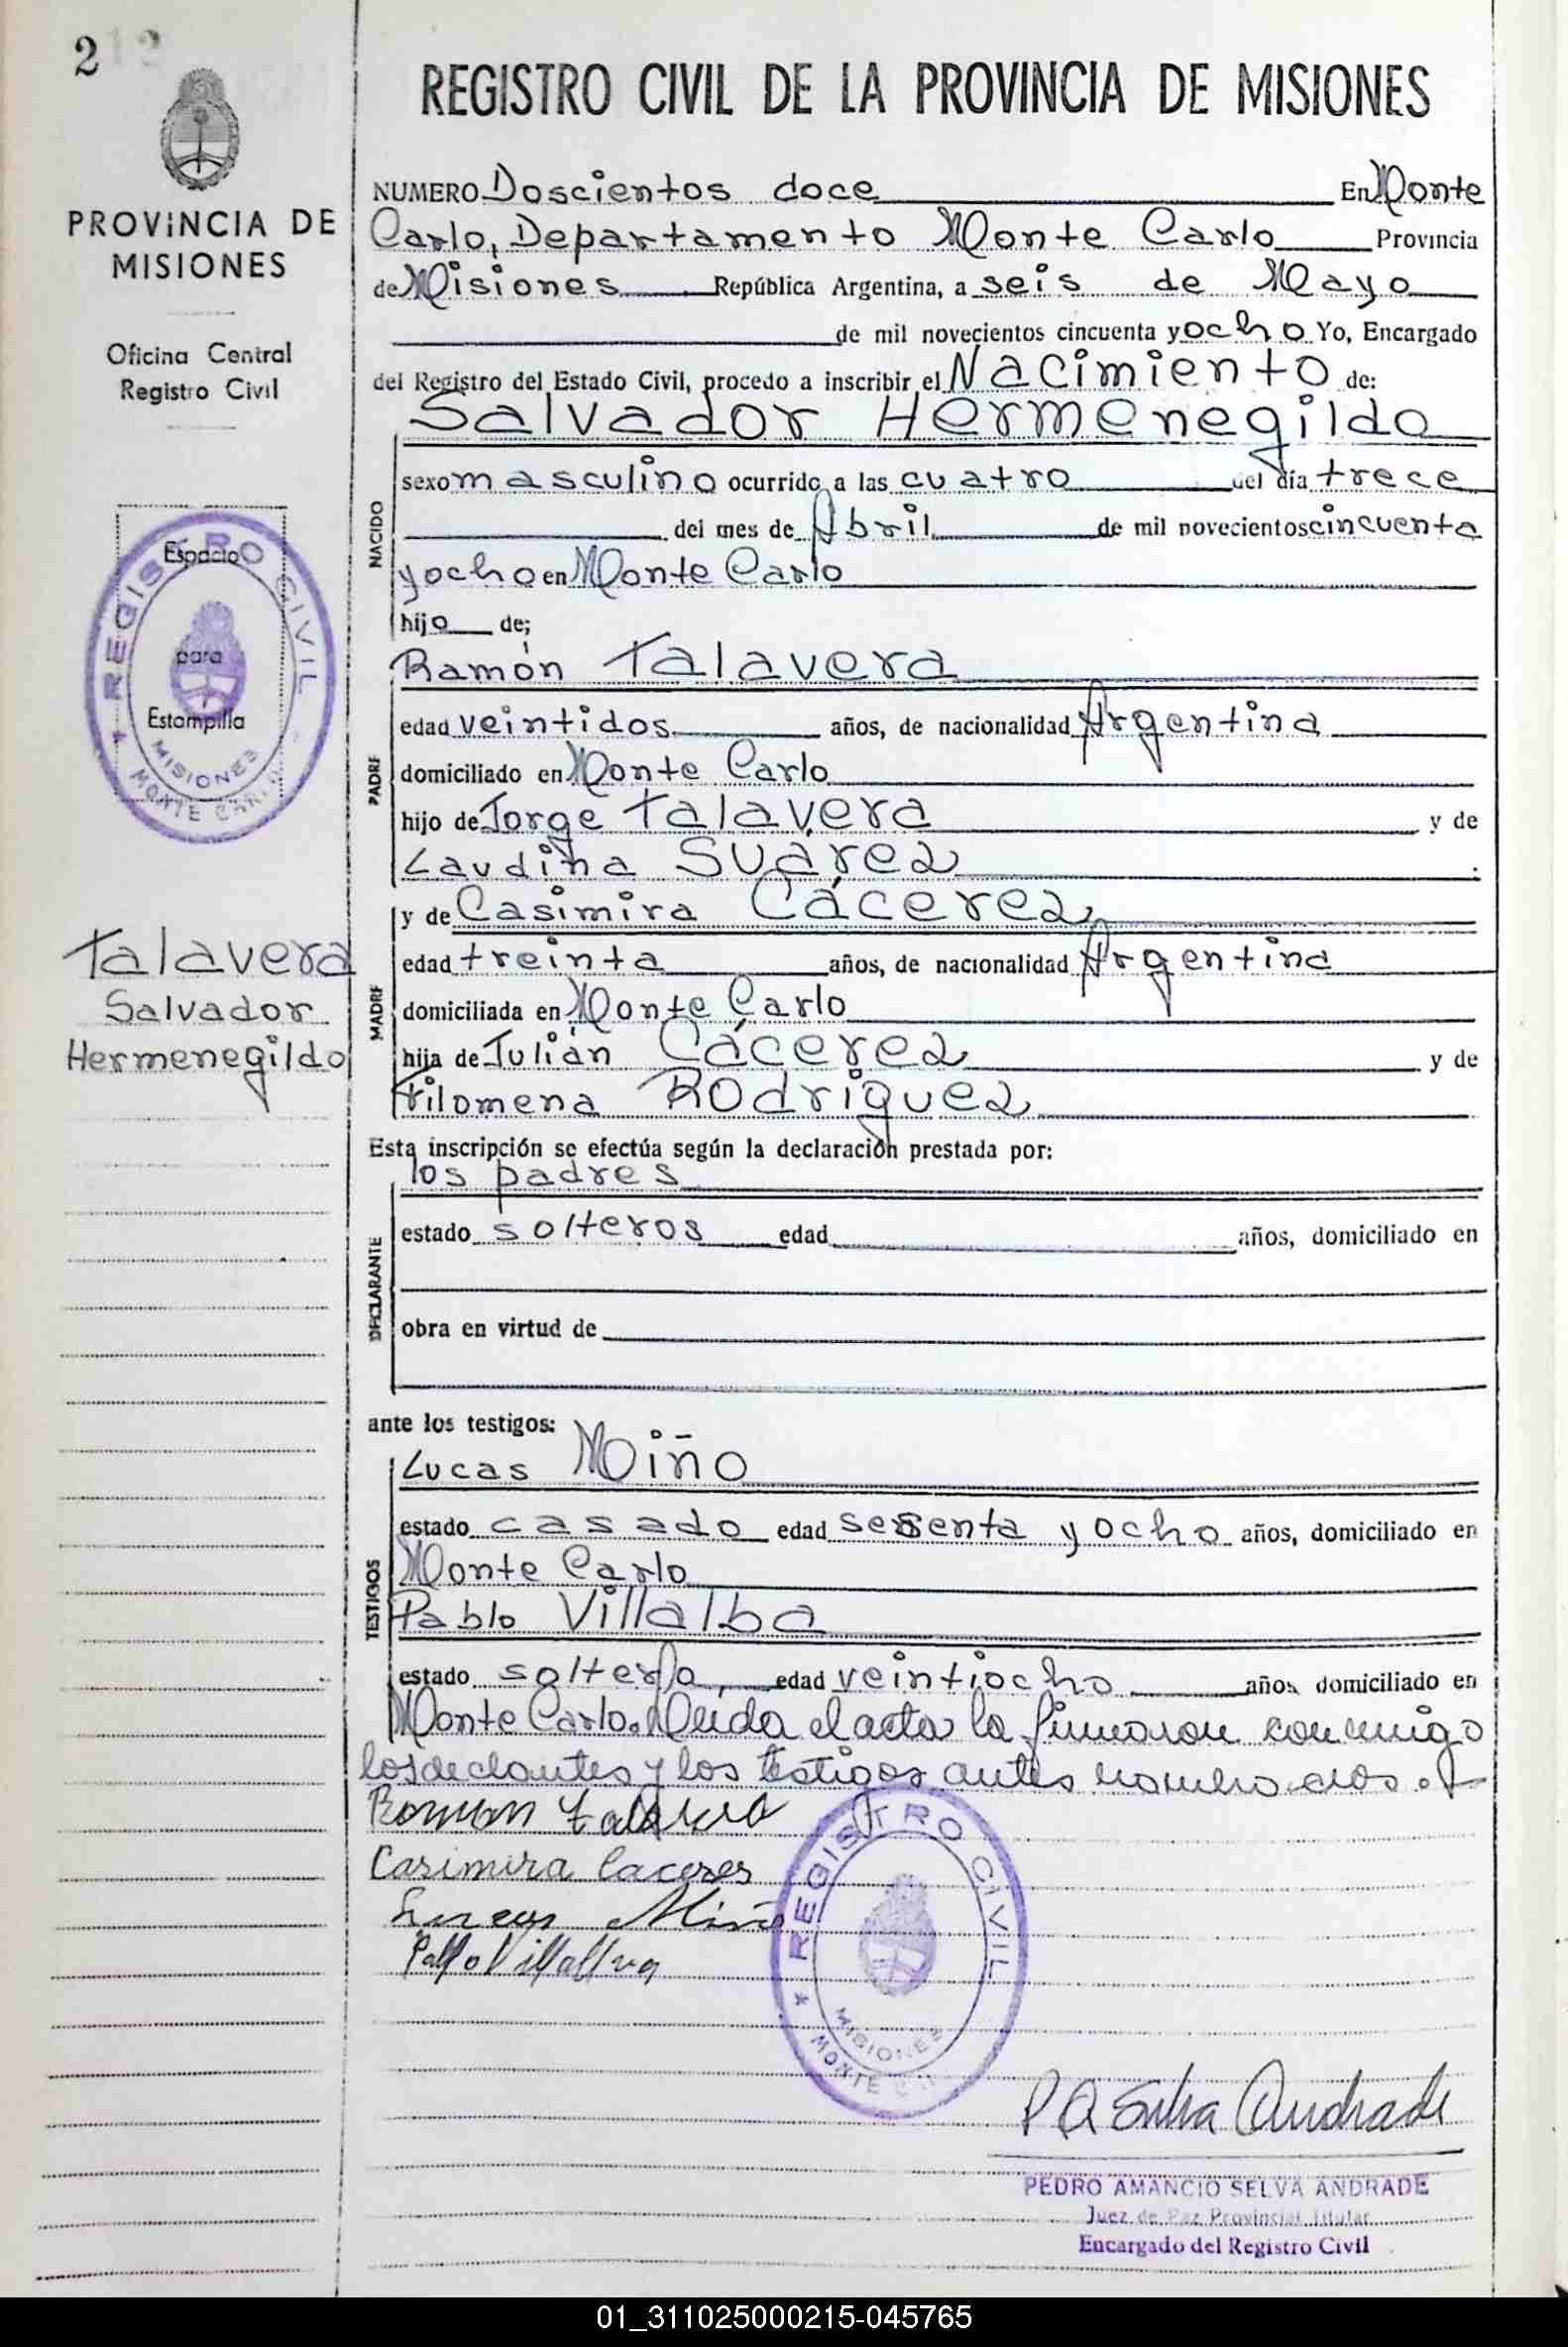 212
PROVINCIA DE
MISIONES
Oficina Central
Registro Civil
Espacio
para
Estampilla
REGISTRO CIVIL
MISIONES
MONTE CARLO
Talavera
Salvador
Hermenegildo
REGISTRO CIVIL DE LA PROVINCIA DE MISIONES
NUMERO Doscientos doce En Monte
Carlo, Departamento Monte Carlo Provincia
de Misiones República Argentina, a seis de Mayo
de mil novecientos cincuenta y ocho Yo, Encargado
del Registro del Estado Civil, procedo a inscribir el Nacimiento de:
Salvador Hermenegildo
NACIDO
sexo masculino ocurrido a las cuatro del día trece
del mes de Abril de mil novecientos cincuenta
y ocho en Monte Carlo
hijo de;
Ramón Talavera
PADRE
edad veintidos años, de nacionalidad Argentina
domiciliado en Monte Carlo
hijo de Jorge Talavera y de
Laudina Suárez
MADRE
y de Casimira Cácerez
edad treinta años, de nacionalidad Argentina
domiciliada en Monte Carlo
hija de Julián Cácerez y de
Filomena Rodriguez
Esta inscripción se efectúa según la declaración prestada por:
los padres
DECLARANTE
estado solteros edad años, domiciliado en
obra en virtud de
ante los testigos:
TESTIGOS
Lucas Miño
estado casado edad sesenta y ocho años, domiciliado en
Monte Carlo
Pablo Villalba
estado soltero, edad veintiocho años domiciliado en
Monte Carlo. Leida el acta la firmaron conmigo
los declantes y los testigos antes nombrados.
Ramon Talavera
Casimira Caceres
Lucas Miño
Pablo Villalva
REGISTRO CIVIL
MISIONES
MONTE
P A Selva Andrade
PEDRO AMANCIO SELVA ANDRADE
Juez de Paz Provincial Titular
Encargado del Registro Civil
01_311025000215-045765